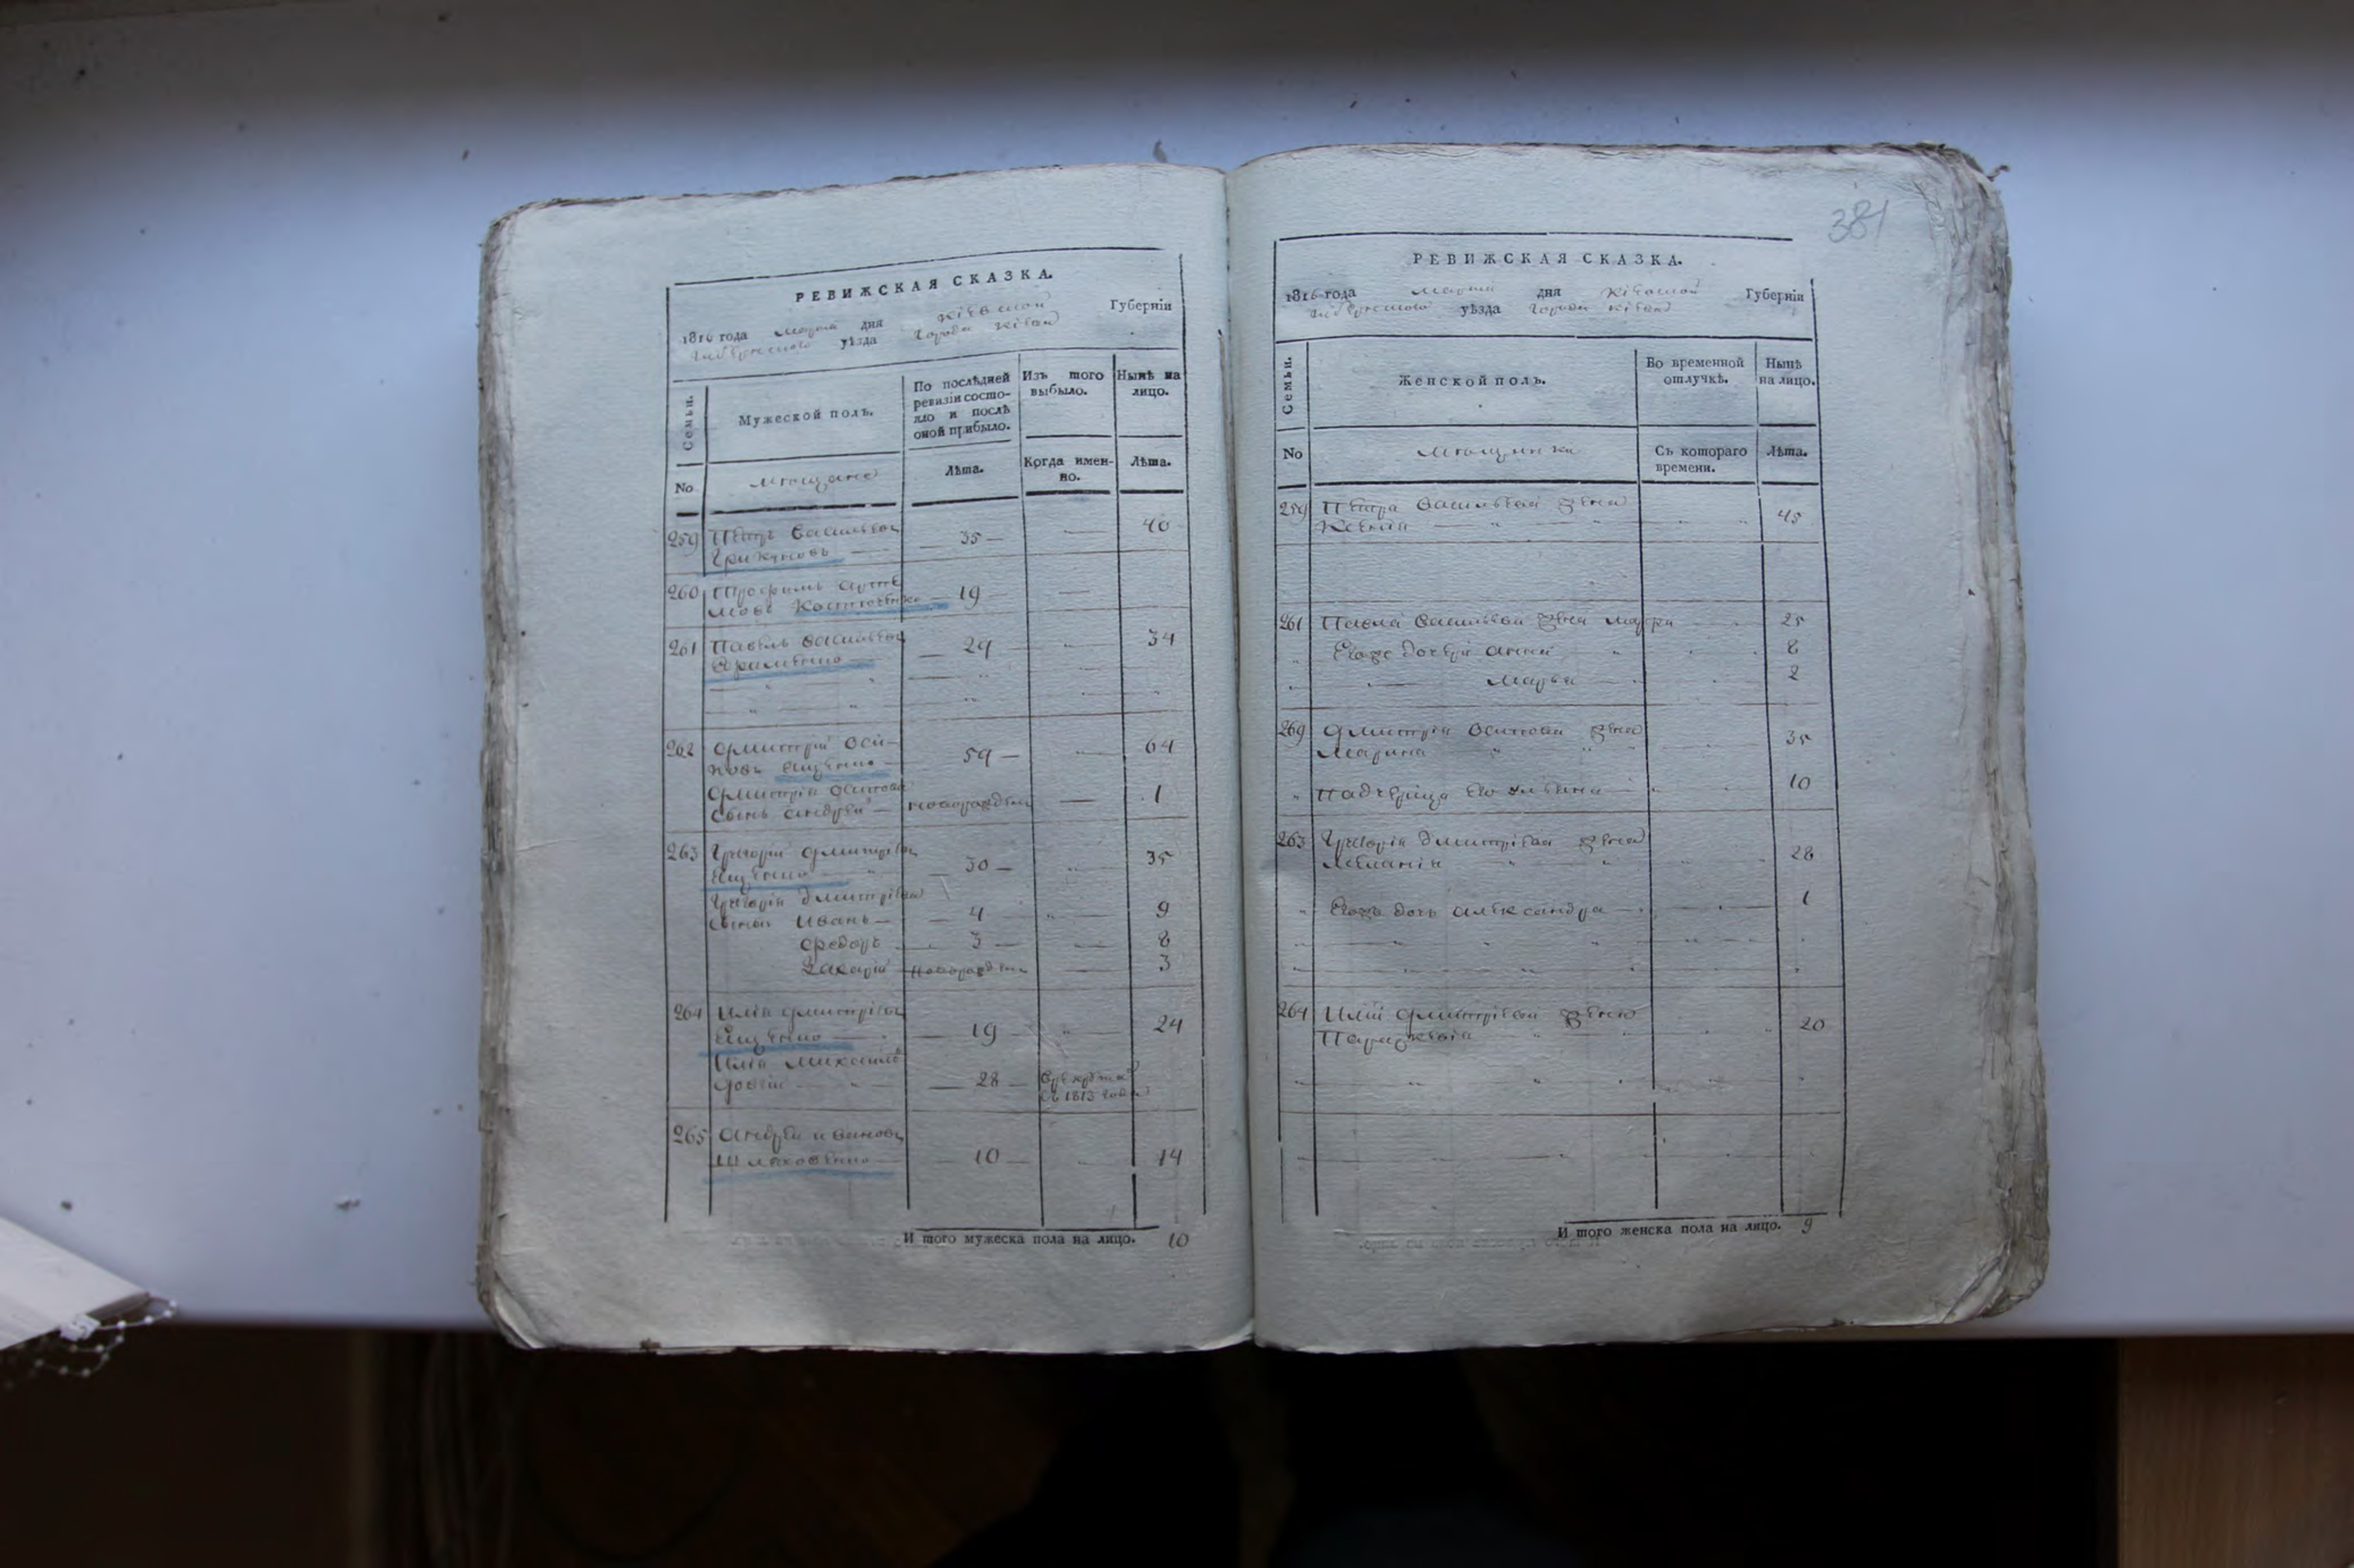 РЕВИЖСКАЯ СКАЗКА.
1816 года марта дня Кіевской Губерніи
уѣзда города Кіева
Семьи.
Мужеской полъ.
По послѣдней
ревизіи состо-
яло и послѣ
оной прибыло.
Изъ того
выбыло.
Нынѣ на
лицо.
No
мещане
Лѣта.
Когда имен-
но.
Лѣта.
259 Петръ Васильевъ
Грикуновъ — 35 — — 40
260 Трофимъ Арте
мовъ — 19 — —
261 Павелъ Васильевъ
Ефименко — 29 — 34
262 Дмитрій Оси-
повъ Ещенко — 59 — 64
Дмитрія Осипова
сынъ Андрей — новорожден — 1
263 Григорій Дмитріевъ
Ещенко — 30 — 35
Григорія Дмитріева
сыны Иванъ — 4 — 9
Федоръ — 3 — 8
Захарій — новорожден — 3
264 Илія Дмитріевъ
Ещенко — 19 — 24
Илія Михайло
— 28 — в рекрута
съ 1813 года
265 Андрей Ивановъ
Шляховенко — 10 — 14
И того мужеска пола на лицо. 10
381
РЕВИЖСКАЯ СКАЗКА.
1816 года марта дня Кіевской Губерніи
уѣзда города Кіева
Семьи.
Женской полъ.
Во временной
отлучкѣ.
Нынѣ
на лицо.
No
мещанки
Съ котораго
времени.
Лѣта.
259 Петра Васильева жена
Ксенія 45
261 Павла Васильева жена Марфа 25
Егоже дочери Анна 8
Марья 2
269 Дмитрія Осипова жена
Марина 35
Падчерица его 10
263 Григорія Дмитріева жена
Меланія 28
Егожъ дочь Александра — 1
264 Иліи Дмитріева жена
Параскевія 20
И того женска пола на лицо. 9